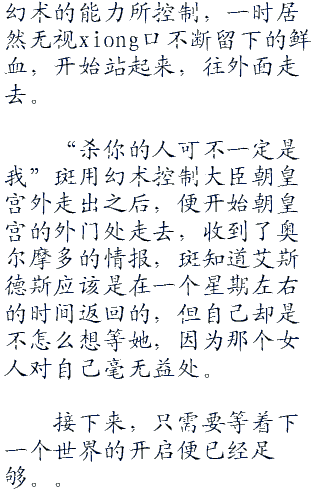 幻术的能力所控制，一时居
然无视xiong口不断留下的鲜
血，开始站起来，往外面走
去。
“杀你的人可不一定是
我”斑用幻术控制大臣朝皇
宫外走出之后，便开始朝皇
宫的外门处走去，收到了奥
尔摩多的情报，斑知道艾斯
德斯应该是在一个星期左右
的时间返回的，但自己却是
不怎么想等她，因为那个女
人对自己毫无益处。
接下来，只需要等着下
一个世界的开启便已经足
够。。